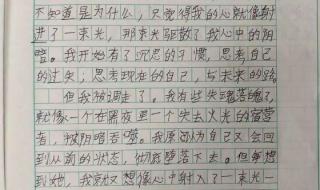 不知道是为什么，只觉得我的心就像射
进了一束光，那束光驱散了我心中的阴
暗。我开始有了沉思的习惯，思考自己
的过失，思考现在的自己，与未来的路。
但我被调走了。我有些失魂落魄了，
就像一个在黑夜里一个失去火光的留营
者，被阴暗吞噬。我原以为自己又会回
到从前的状态，彻底堕落下去。但每想
到她，我就又想像心中射入了一束光一